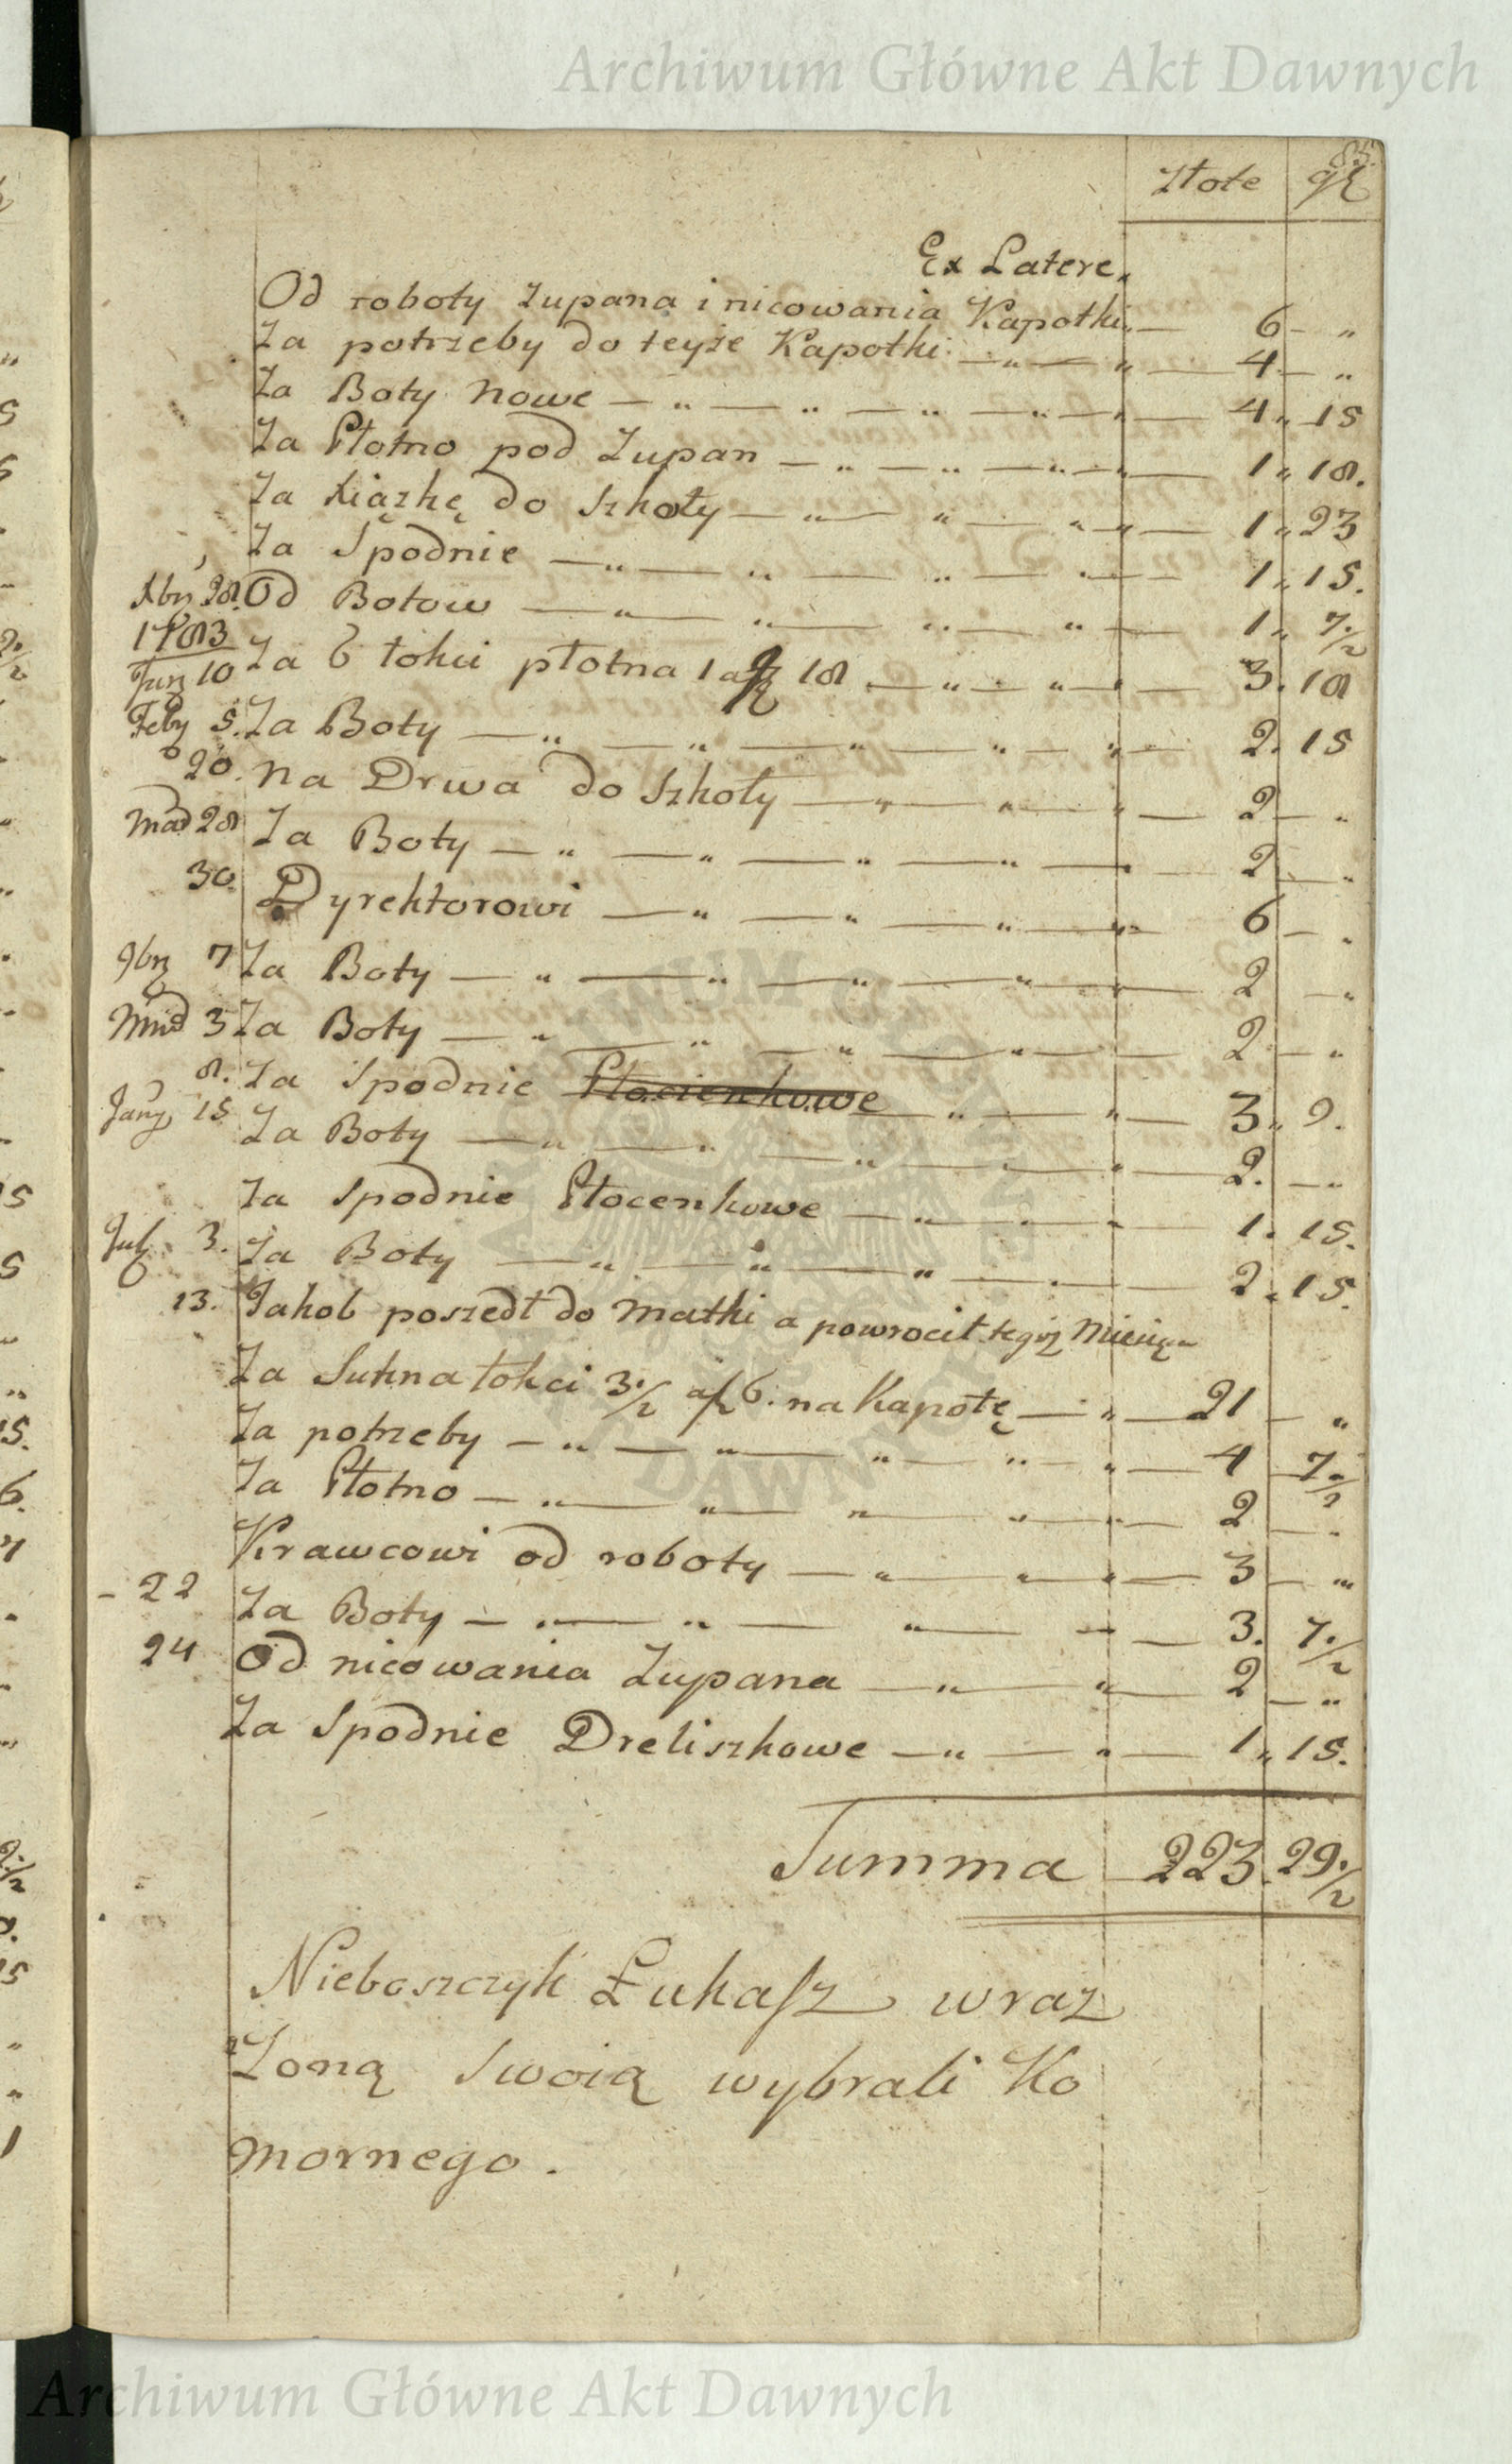 Archiwum Główne Akt Dawnych
85.
złote gr
Ex Latere.
Od roboty Żupana i nicowania Kapotki — 6 — "
Za potrzeby do teyże Kapotki — " — " — 4 — "
Za Boty nowe — " — " — " — " — 4 " 15
Za Płotno pod Żupan — " — " — " — 1 " 18.
Za Xiążkę do Szkoły — " — " — " — 1 " 23
Za Spodnie — " — " — " — " — 1 " 15.
Xbrj 28. Od Botow — " — " — " — " — 1 " 7./2
1783
Junj 10 Za 6 łokci płotna 1 a gr 18 — " — " — 3. 18
Feby 5. Za Boty — " — " — " — " — 2. 15
20. Na Drwa do Szkoły — " — " — " — 2 — "
28 Za Boty — " — " — " — " — 2 — "
30. Dyrektorowi — " — " — " — " — 6 — "
9brj 7 Za Boty — " — " — " — " — 2 — "
3 Za Boty — " — " — " — " — 2 — "
8. Za Spodnie Płocienkowe — " — " — 3 " 9.
Janrj 15 Za Boty — " — " — " — " — 2. — "
Za Spodnie Płocenkowe — " — " — " — 1. 15.
Julj 3. Za Boty — " — " — " — " — 2. 15.
13. Jakob poszedł do Matki a powrocił tegoż Miesiąca
Za Sukna łokci 3./2 af 6. na Kapotę — " — 21 — "
Za potrzeby — " — " — " — " — 4 — 7./2
Za Płotno — " — " — " — " — 2 — "
Krawcowi od roboty — " — " — " — 3 — "
- 22 Za Boty — " — " — " — 3. 7./2
24 Od nicowania Żupana — " — " — 2 — "
Za Spodnie Dreliszkowe — " — " — 1 " 15.
Summa 223. 29./2
Nieboszczyk Łukasz wraz
z Żoną swoią wybrali Ko
mornego.
Archiwum Główne Akt Dawnych